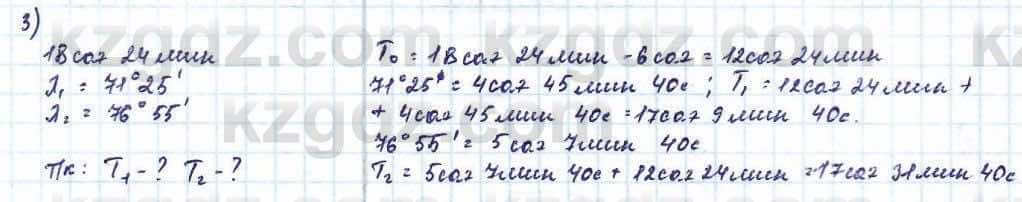 3)
18 саг 24 мин
λ₁ = 71°25'
λ₂ = 76°55'
Т/к: T₁-? T₂-?
T₀ = 18 саг 24 мин - 6 саг = 12 саг 24 мин
71°25' = 4 саг 45 мин 40с ; T₁ = 12 саг 24 мин +
+ 4 саг 45 мин 40с = 17 саг 9 мин 40с.
76°55' = 5 саг 7 мин 40с
T₂ = 5 саг 7 мин 40с + 12 саг 24 мин = 17 саг 31 мин 40с
kzgdz.com